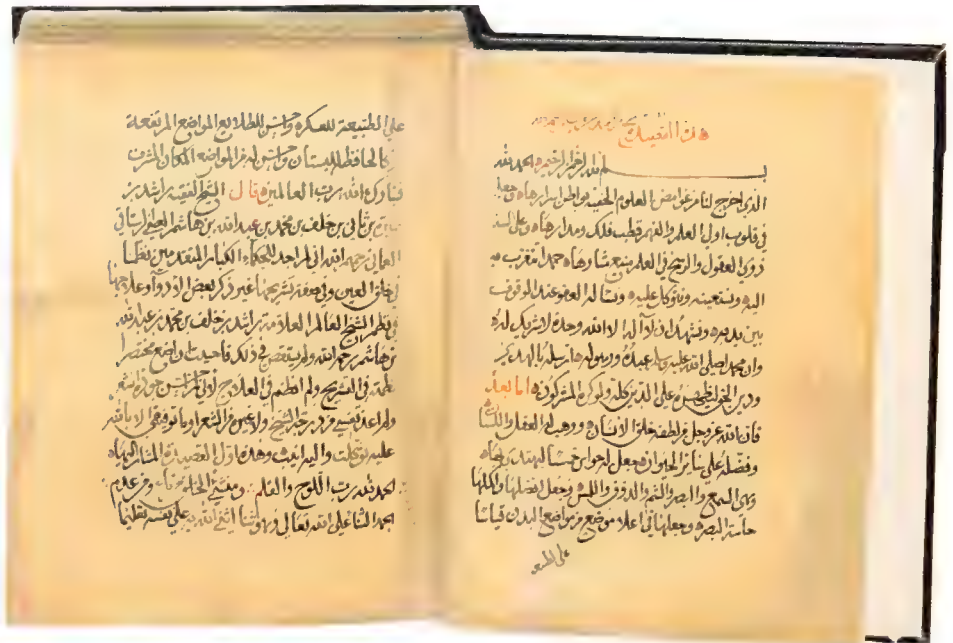 هذه القصيدة
بسم الله الرحمن الرحيم الحمد لله
الذي اخرج لنا من غوامض العلوم الخفية بواطن اسرارها وجعل
في قلوب اولي العلم والفهم قطب فلك ومدارها وعلى
ذوي العقول والرجح في العلم ينبع حمدا نتقرب به
اليه ونستعينه ونتوكل عليه ونساله العفو عند الوقوف
بين يديه ونشهد ان لا اله الا الله وحده لا شريك له
وان محمدا صلى الله عليه وسلم عبده ورسوله ارسله بالهدى
ودين الحق ليظهره على الدين كله ولو كره المشركون اما بعد
فان الله عز وجل من لطفه خلق الانسان ووهب له العقل واللسان
وفضله على سائر الحيوان وجعل له حواس خمسا ليهتدي بها
وهي السمع والبصر والشم والذوق واللمس وجعل افضلها واكملها
حاسة البصر وجعلها في اعلا موضع من مواضع البدن قياسا
على الطبيعة
على الطبيعة للعسكر للطلايع المواضع المرتفعة
كالحافظ للبستان من المواضع المكان المشرف
فتبارك الله رب العالمين قال الشيخ الفقيه راشد بن
بن ثاني بن خلف بن محمد بن عبد الله بن هاشم العيني الرستاقي
العماني رحمهم الله اني لم اجد للحكماء الكبار المتقدمين نظما
في خلق العين وفي صفة تشريحها غير ذكر بعض الادوا وعلاجها
في نظم الشيخ العالم العلامة راشد بن خلف بن محمد بن عبد الله
بن هاشم رحمه الله ولم يتقص في ذلك فاحببت ان اضع مختصرا
نظمته في التشريح ولم انظم في العلاج لاني لم
ولم اعد نفسي من درجة الشيخ ولا من الشعرا وما توفيقي الا بالله
عليه توكلت واليه انيب وهذه اول القصيدة
الحمد لله رب اللوح والقلم ومنشئ الخلق من عدم
الحمد الثنا على الله تعالى وهو ثنا اثنى الله به على نفسه تعظيما